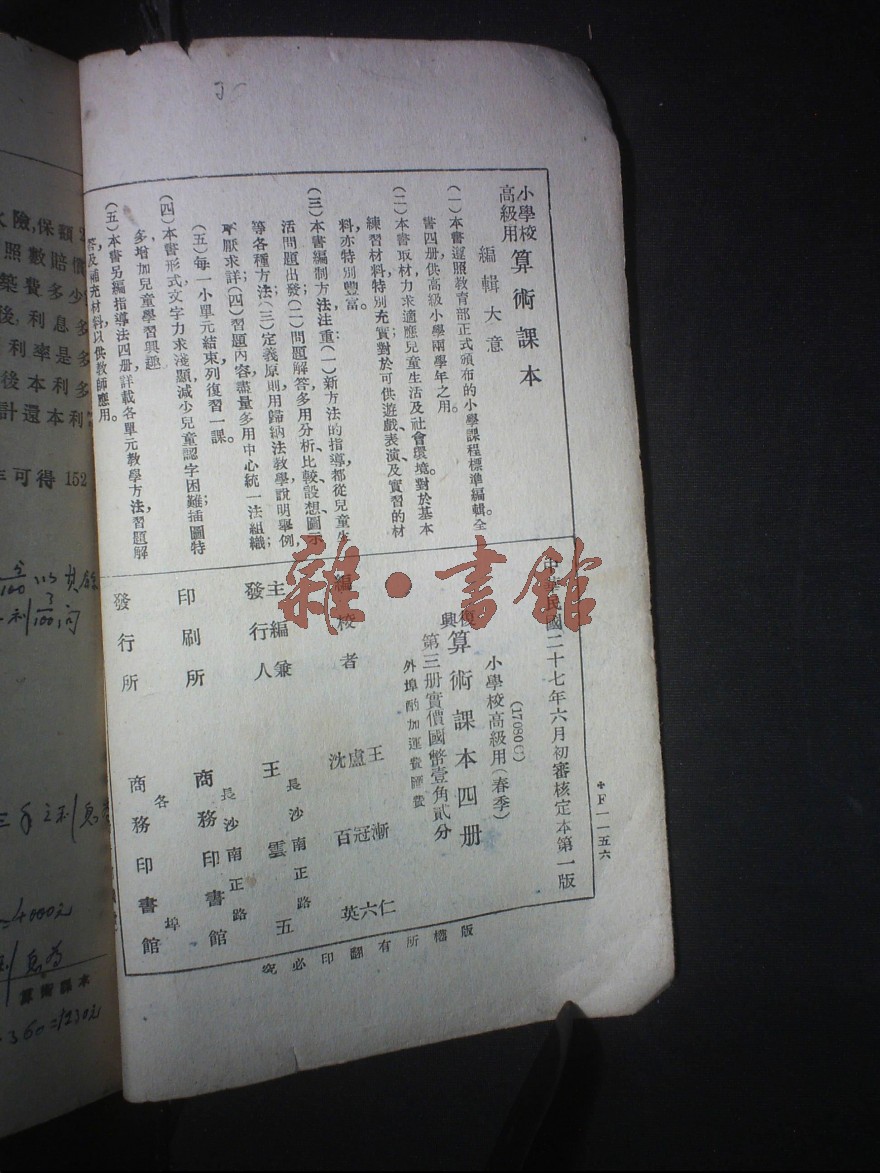 小學校高級用 算術課本
編輯大意
(一)本書遵照教育部正式頒布的小學課程標準編輯。全
書四册供高級小學兩學年之用。
(二)本書取材力求適應兒童生活及社會環境。對於基本
練習材料,特別充實;對於可供遊戲、表演、及實習的材
料,亦特別豐富。
(三)本書編制方法注重:(一)新方法的指導,都從兒童生
活問題出發;(二)問題解答多用分析、比較、設想、圖示
等各種方法;(三)定義原則用歸納法教學,說明舉例,
不厭求詳;(四)習題內容,盡量多用中心統一法組織;
(五)每一小單元結束,列復習一課。
(四)本書形式,文字力求淺顯,減少兒童認字困難;插圖特
多,增加兒童學習興趣
(五)本書另編指導法四册,詳載各單元教學方法,習題解
答及補充材料,以供教師應用。
中華民國二十七年六月初審核定本第一版
(17080C)
小學校高級用(春季)
復興算術課本四册
第三册實價國幣壹角貳分
外埠酌加運費匯費
編校者 王漸仁 盧冠六 沈百英
主編兼發行人 王雲五
長沙南正路
印刷所 商務印書館
長沙南正路
發行所 商務印書館
各埠
版權所有翻印必究
*F一一五六
雜·書館
險,保額
照數賠償
築費多少
後,利息多
利率是多
後本利多
計還本利
可得 152
三年之利息
=4000元
算術課本
360=1230元